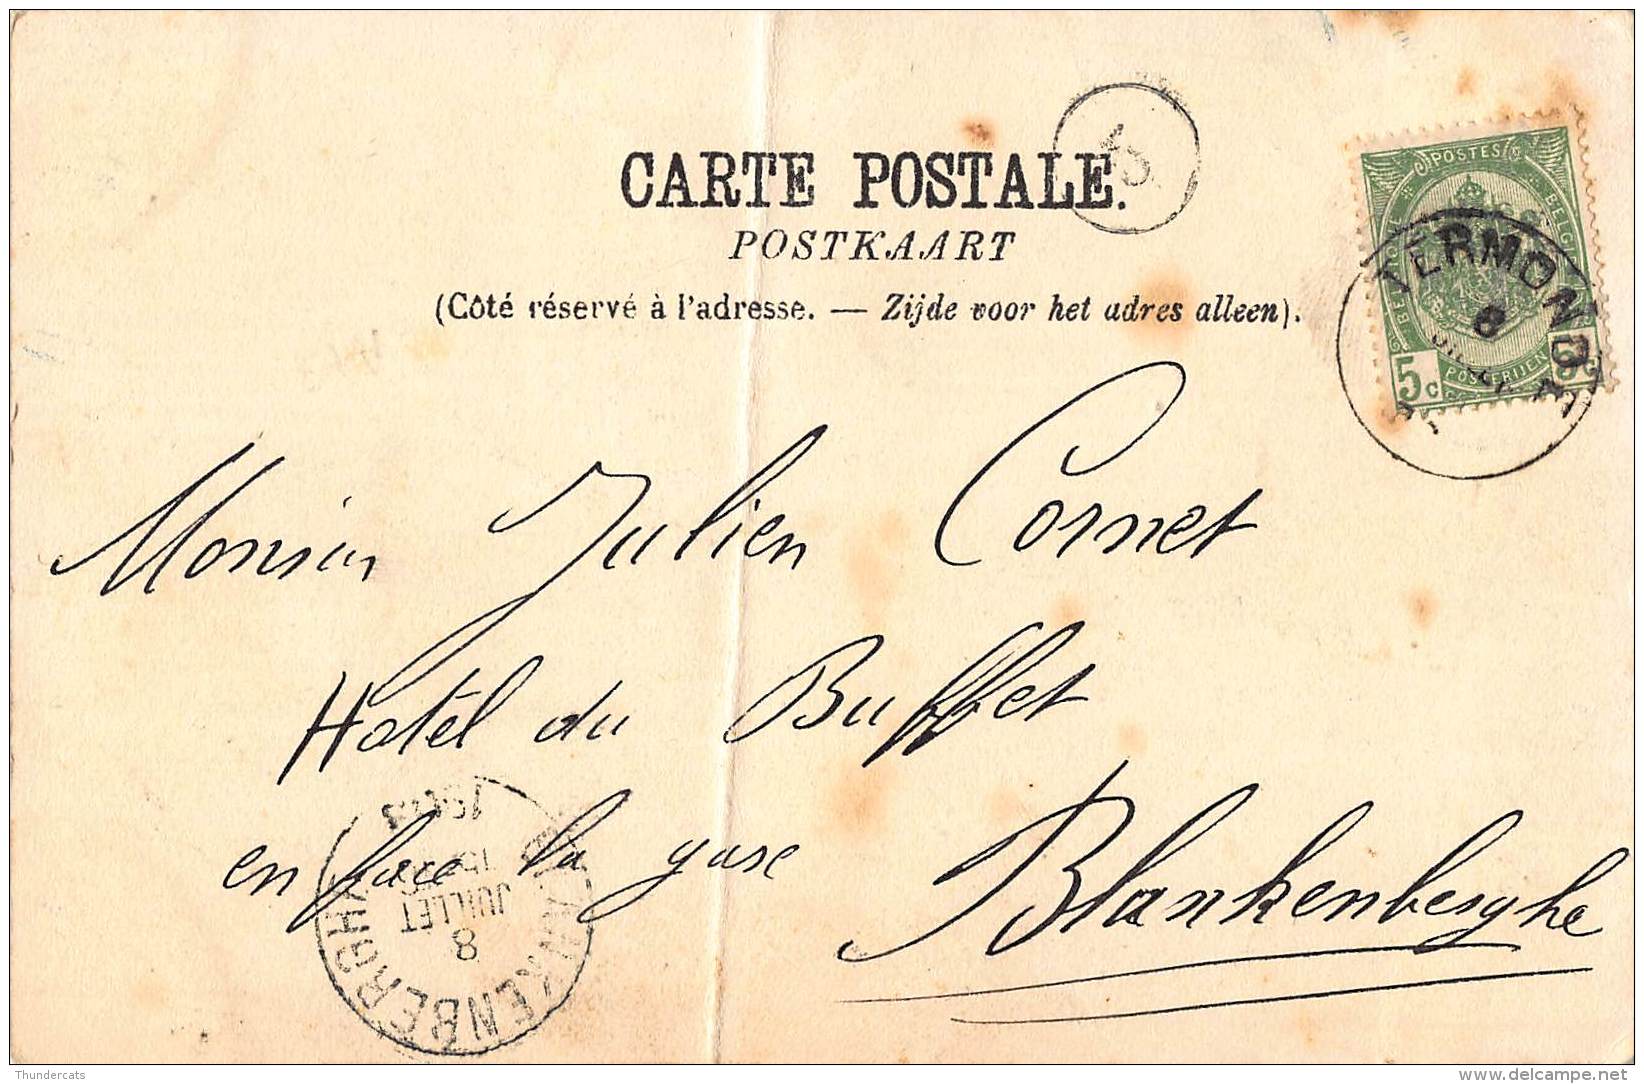 CARTE POSTALE.
POSTKAART
(Côté réservé à l'adresse. — Zijde voor het adres alleen).
13
POSTES
BELGIQUE
BELGIË
POSTERIJEN
5c 5c
TERMONDE
8
Monsieur Julien Cornet
Hotel du Buffet
en face la gare
Blankenberghe
BLANKENBERGHE
8
JUILLET
Thundercats
delcampe.net